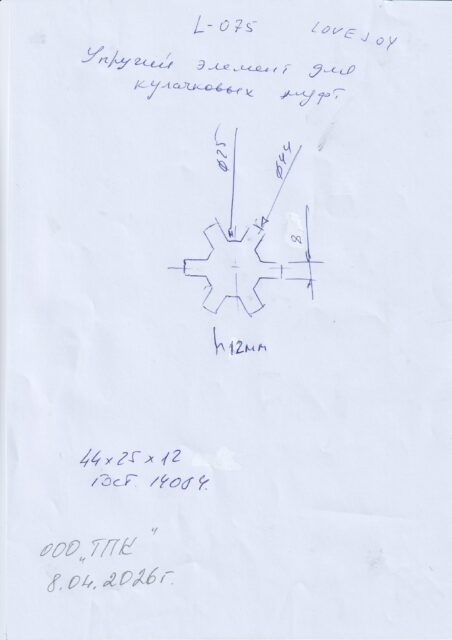 L-075 LOVEJOY
Упругий элемент для
кулачковых муфт.
Ø25
Ø44
8
h 12мм
44x25x12
ГОСТ. 14084.
ООО „ТПК"
8.04.2026г.